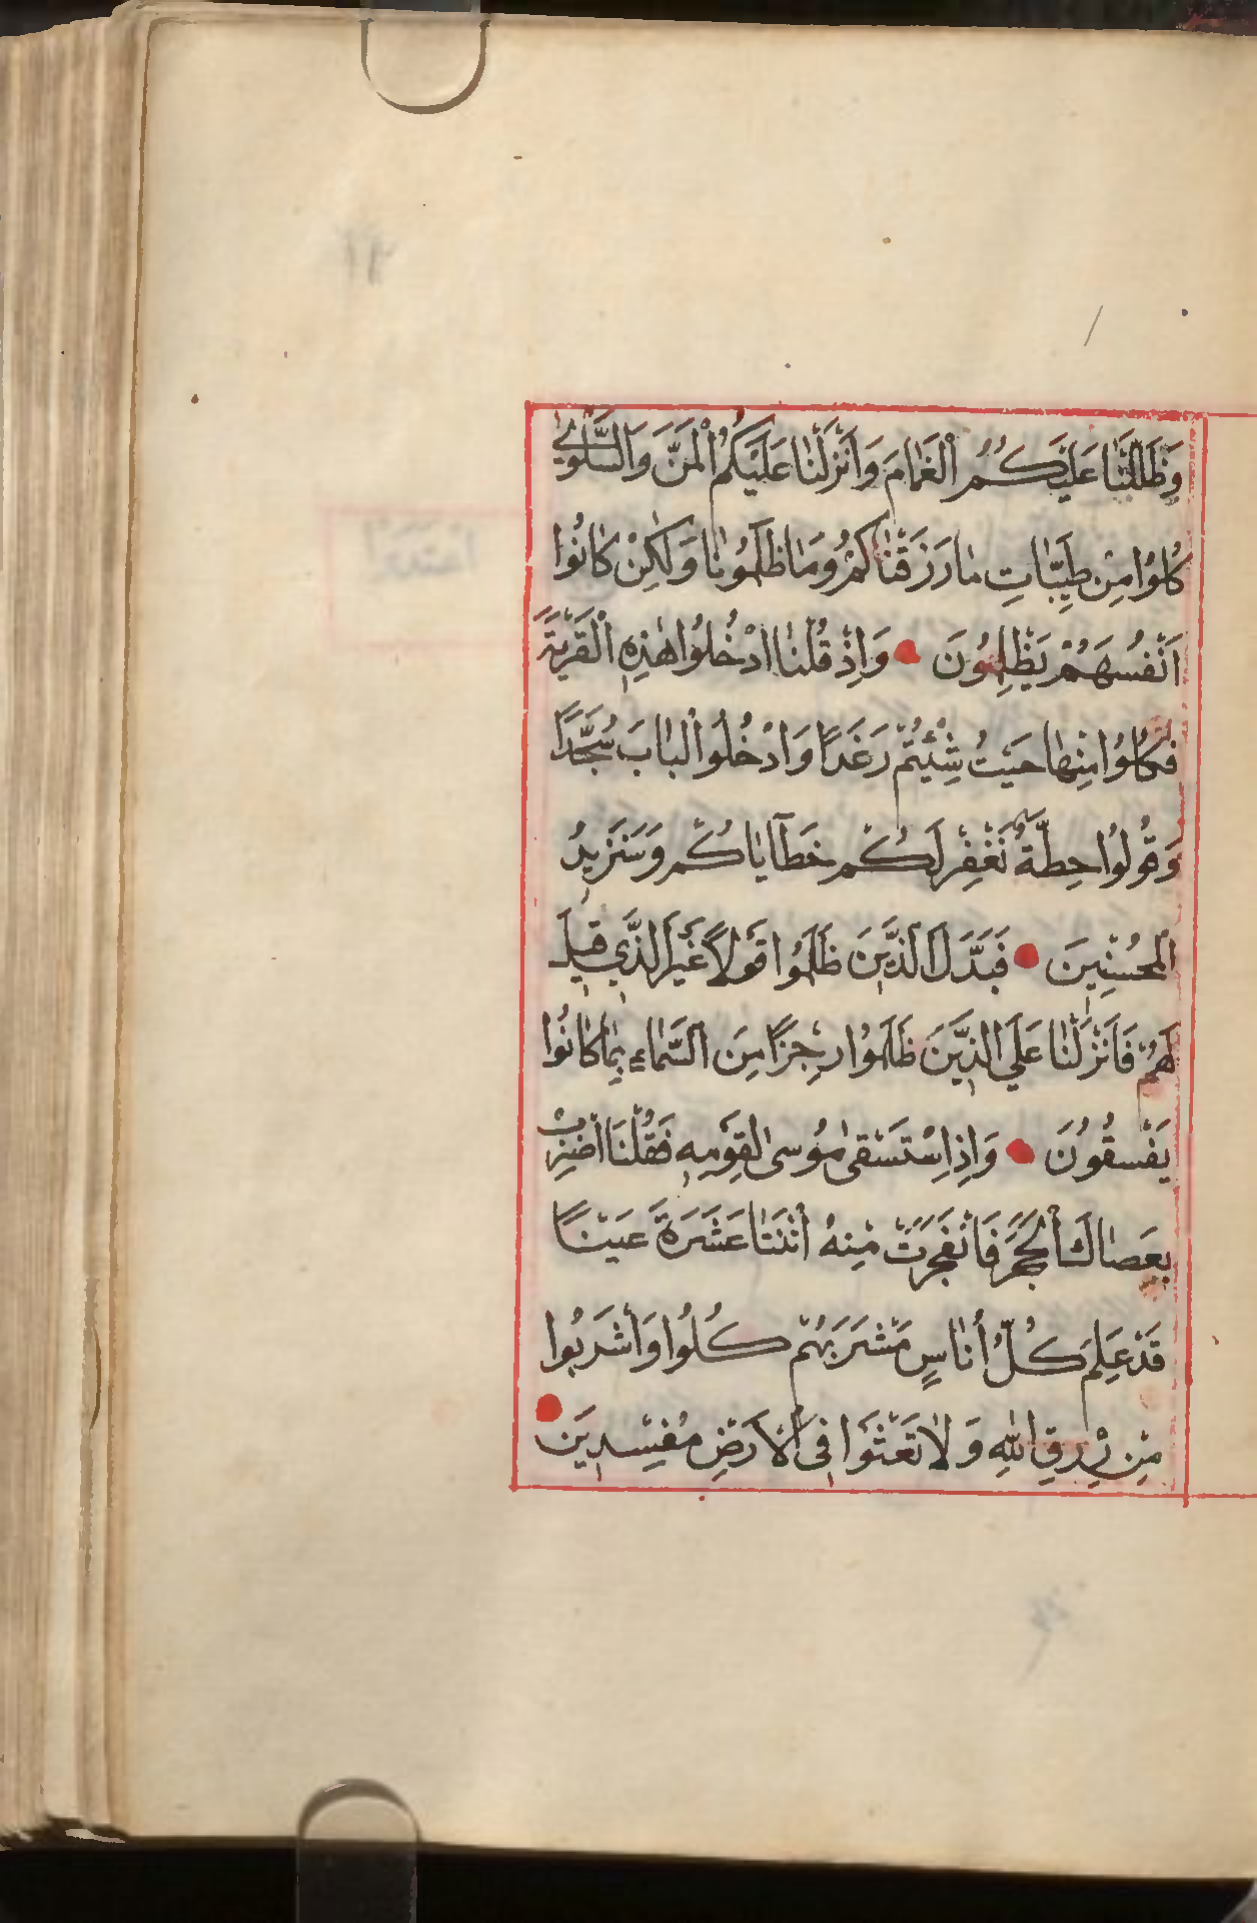 وَظَلَّلْنَا عَلَيْكُمُ الْغَمَامَ وَأَنْزَلْنَا عَلَيْكُمُ الْمَنَّ وَالسَّلْوٰى
كُلُوا مِنْ طَيِّبَاتِ مَا رَزَقْنَاكُمْ وَمَا ظَلَمُونَا وَلٰكِنْ كَانُوا
اَنْفُسَهُمْ يَظْلِمُونَ ● وَاِذْ قُلْنَا ادْخُلُوا هٰذِهِ الْقَرْيَةَ
فَكُلُوا مِنْهَا حَيْثُ شِئْتُمْ رَغَدًا وَادْخُلُوا الْبَابَ سُجَّدًا
وَقُولُوا حِطَّةٌ نَغْفِرْ لَكُمْ خَطَايَاكُمْ وَسَنَزِيدُ
الْمُحْسِنِينَ ● فَبَدَّلَ الَّذِينَ ظَلَمُوا قَوْلًا غَيْرَ الَّذِي قِيلَ
لَهُمْ فَاَنْزَلْنَا عَلَي الَّذِينَ ظَلَمُوا رِجْزًا مِنَ السَّمَاءِ بِمَا كَانُوا
يَفْسُقُونَ ● وَاِذِ اسْتَسْقٰى مُوسٰى لِقَوْمِهِ فَقُلْنَا اضْرِبْ
بِعَصَاكَ الْحَجَرَ فَانْفَجَرَتْ مِنْهُ اثْنَتَا عَشْرَةَ عَيْنًا
قَدْ عَلِمَ كُلُّ أُنَاسٍ مَشْرَبَهُمْ كُلُوا وَاشْرَبُوا
مِنْ رِزْقِ اللّٰهِ وَلَا تَعْثَوْا فِى الْاَرْضِ مُفْسِدِينَ ●